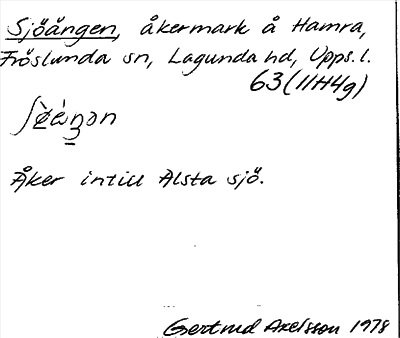 Sjöängen, åkermark å Hamra,
Fröslunda sn, Lagunda hd, Upps. l.
63 (11H4g)
Åker intill Alsta sjö.
Gertrud Axelsson 1978